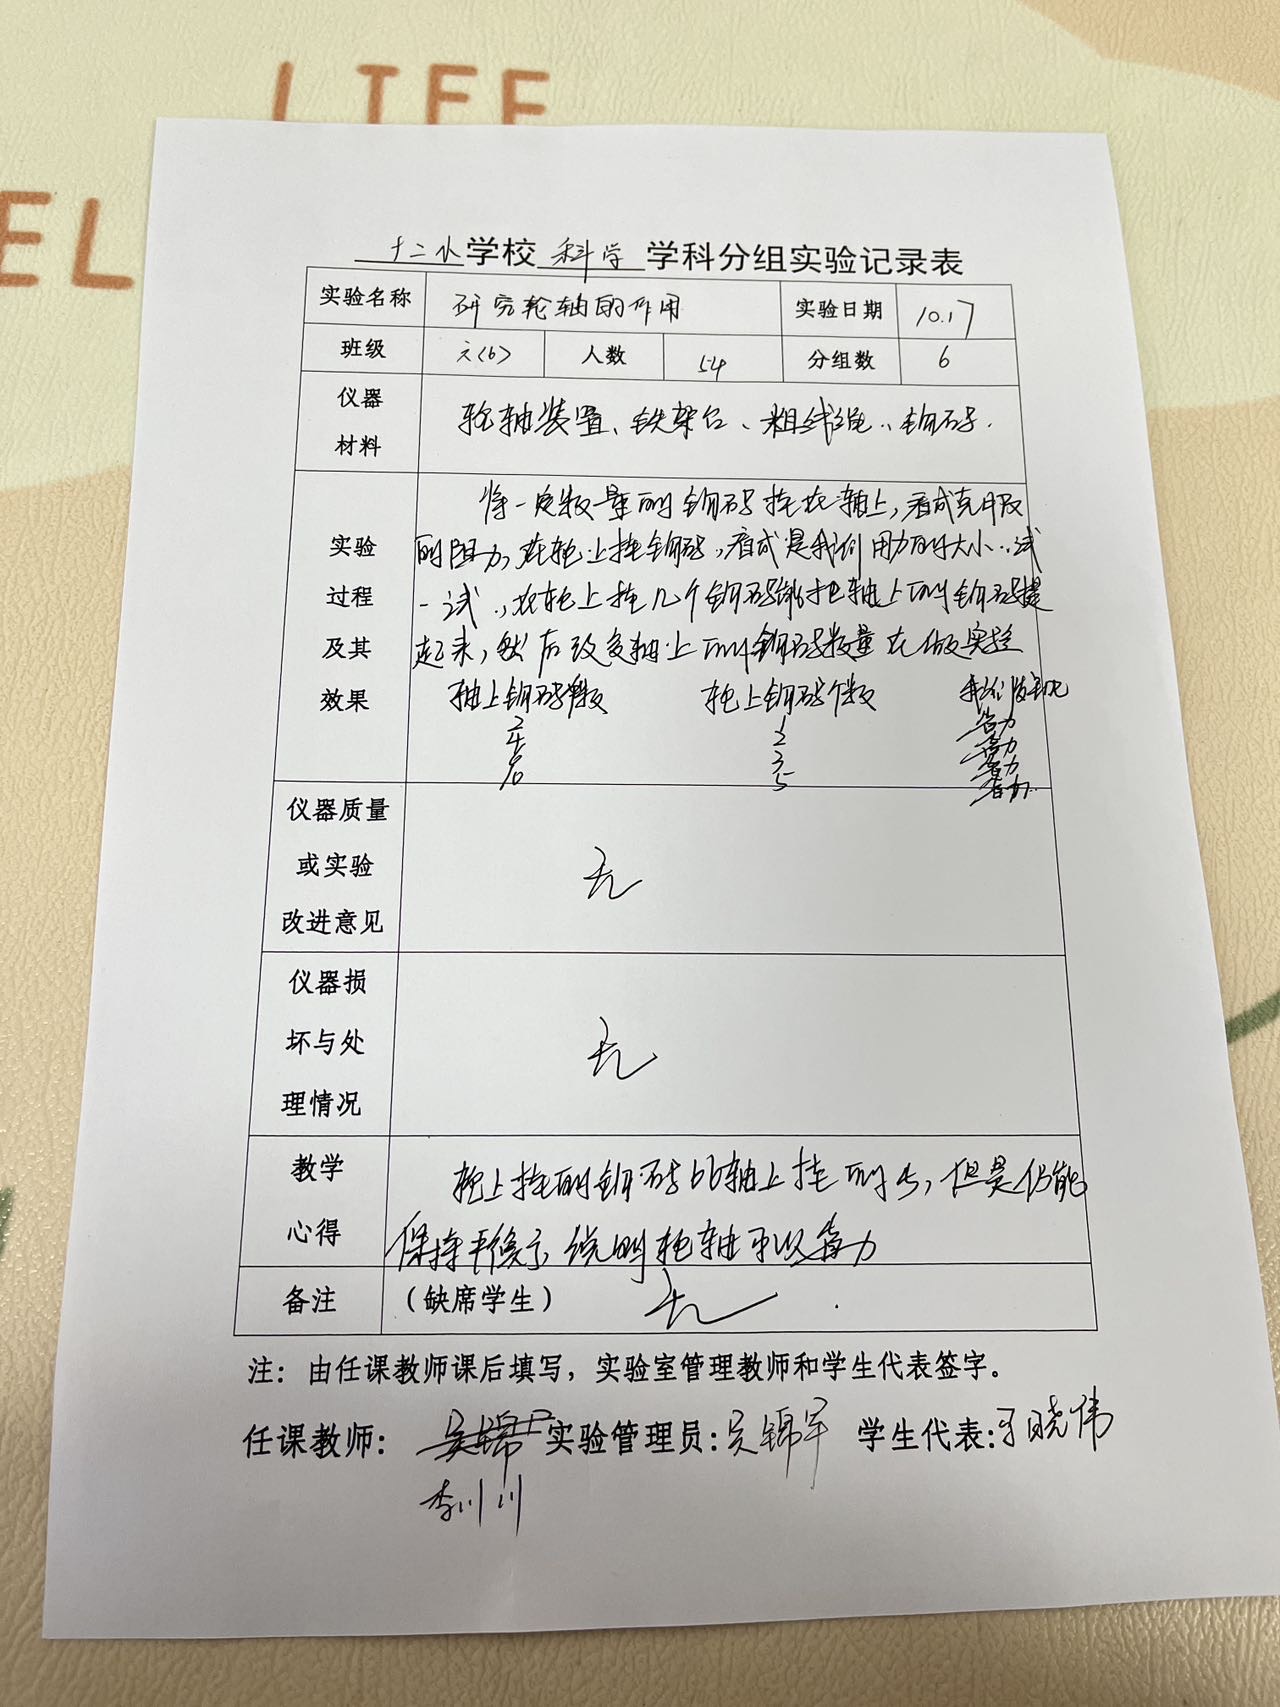 LIFE
EL
十二小学校科学学科分组实验记录表
实验名称 研究轮轴的作用 实验日期 10.17
班级 六(6) 人数 54 分组数 6
仪器材料 轮轴装置、铁架台、粗线绳、钩码.
实验过程及其效果
将一定数量的钩码挂在轴上,看成克服
的阻力,在轮上挂钩码,看成是我们用力的大小.试
一试,在轮上挂几个钩码能把轴上的钩码提
起来,然后改变轴上的钩码数量在做实验
轴上钩码个数 轮上钩码个数 我们的发现
2 1 省力
4 2 省力
6 3 省力
10 5 省力
仪器质量或实验改进意见 无
仪器损坏与处理情况 无
教学心得
轮上挂的钩码比轴上挂的少,但是仍能
保持平衡,说明轮轴可以省力
备注 (缺席学生) 无
注:由任课教师课后填写,实验室管理教师和学生代表签字。
任课教师: 实验管理员:吴锦军 学生代表:于晓伟
李川川